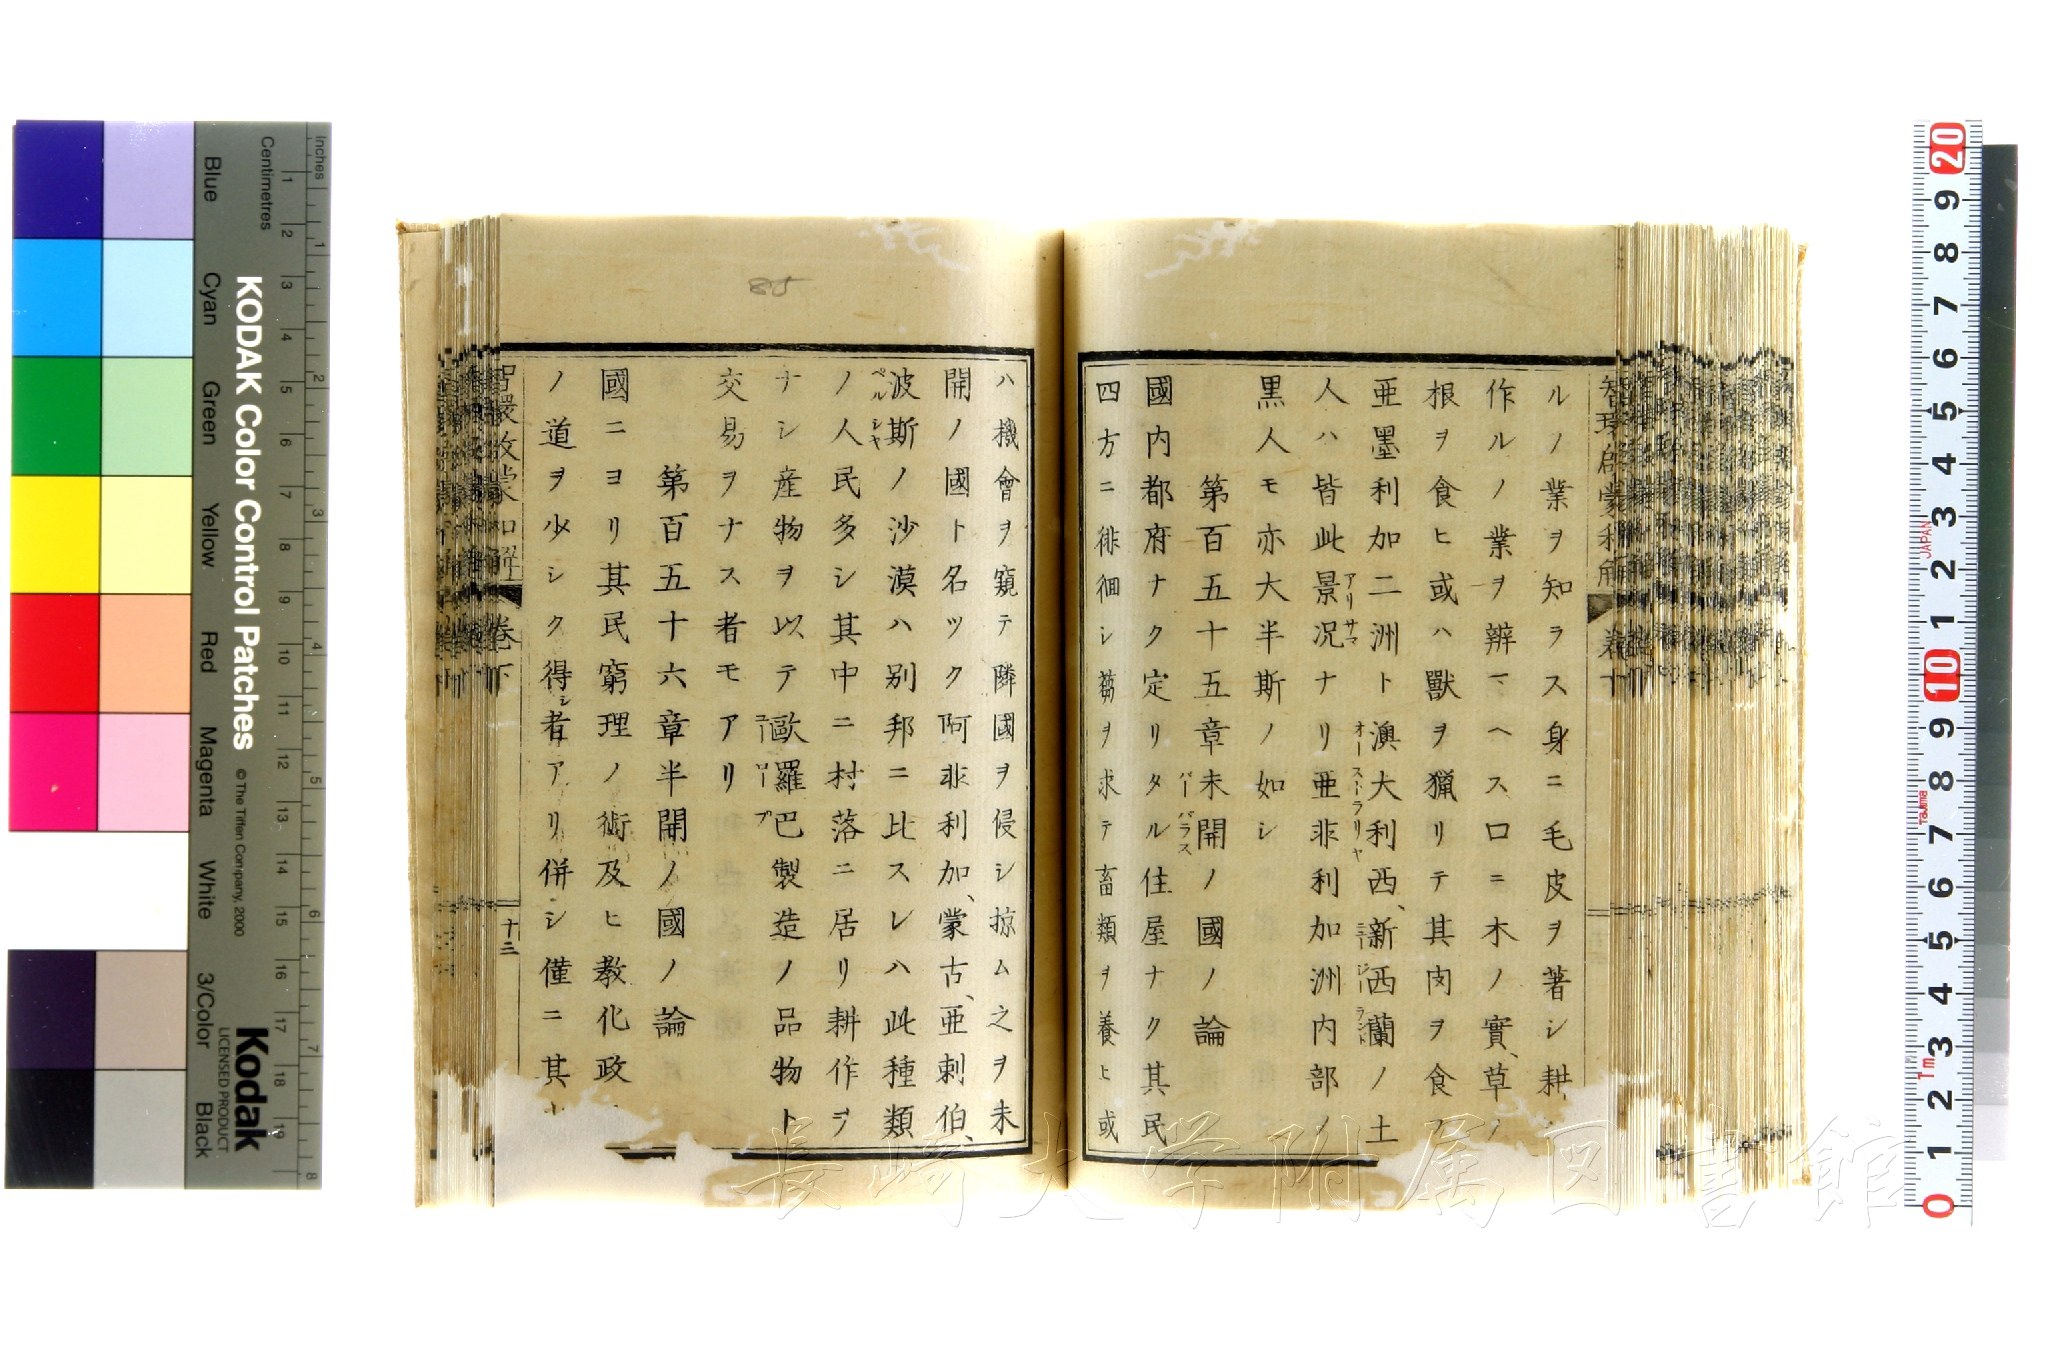 智環啓蒙和解
ルノ業ヲ知ラス身ニ毛皮ヲ著シ耕
作ルノ業ヲ辨マヘス口ニ木ノ實、草ノ
根ヲ食ヒ或ハ獸ヲ猟リテ其肉ヲ食フ
亜墨利加二洲ト澳大利西、新西蘭ノ土
オーストラリヤ
ニージーラント
人ハ皆此景況ナリ亜非利加洲内部ノ
アリサマ
黒人モ亦大半斯ノ如シ
第百五十五章未開ノ國ノ論
バーバラス
國内都府ナク定リタル住屋ナク其民
四方ニ徘徊シ蒭ヲ求テ畜類ヲ養ヒ或
ハ機會ヲ窺テ隣國ヲ侵シ掠ム之ヲ未
開ノ國ト名ツク阿非利加、蒙古、亜剌伯、
波斯ノ沙漠ハ别邦ニ比スレハ此種類
ペルシヤ
ノ人民多シ其中ニ村落ニ居リ耕作ヲ
ナシ産物ヲ以テ歐羅巴製造ノ品物ト
ヨーロープ
交易ヲナス者モアリ
第百五十六章半開ノ國ノ論
國ニヨリ其民窮理ノ術及ヒ教化政
ノ道ヲ少シク得シ者アリ併シ僅ニ其
智環啓蒙和解 卷下
十三
85
長崎大学附属図書館
KODAK Color Control Patches
© The Tiffen Company, 2000
Kodak
LICENSED PRODUCT
Inches
Centimetres
Blue
Cyan
Green
Yellow
Red
Magenta
White
3/Color
Black
1 2 3 4 5 6 7 8
1 2 3 4 5 6 7 8 9 10 11 12 13 14 15 16 17 18 19
20 9 8 7 6 5 4 3 2 1 10 9 8 7 6 5 4 3 2 1 0
JAPAN
Tajima
Tm